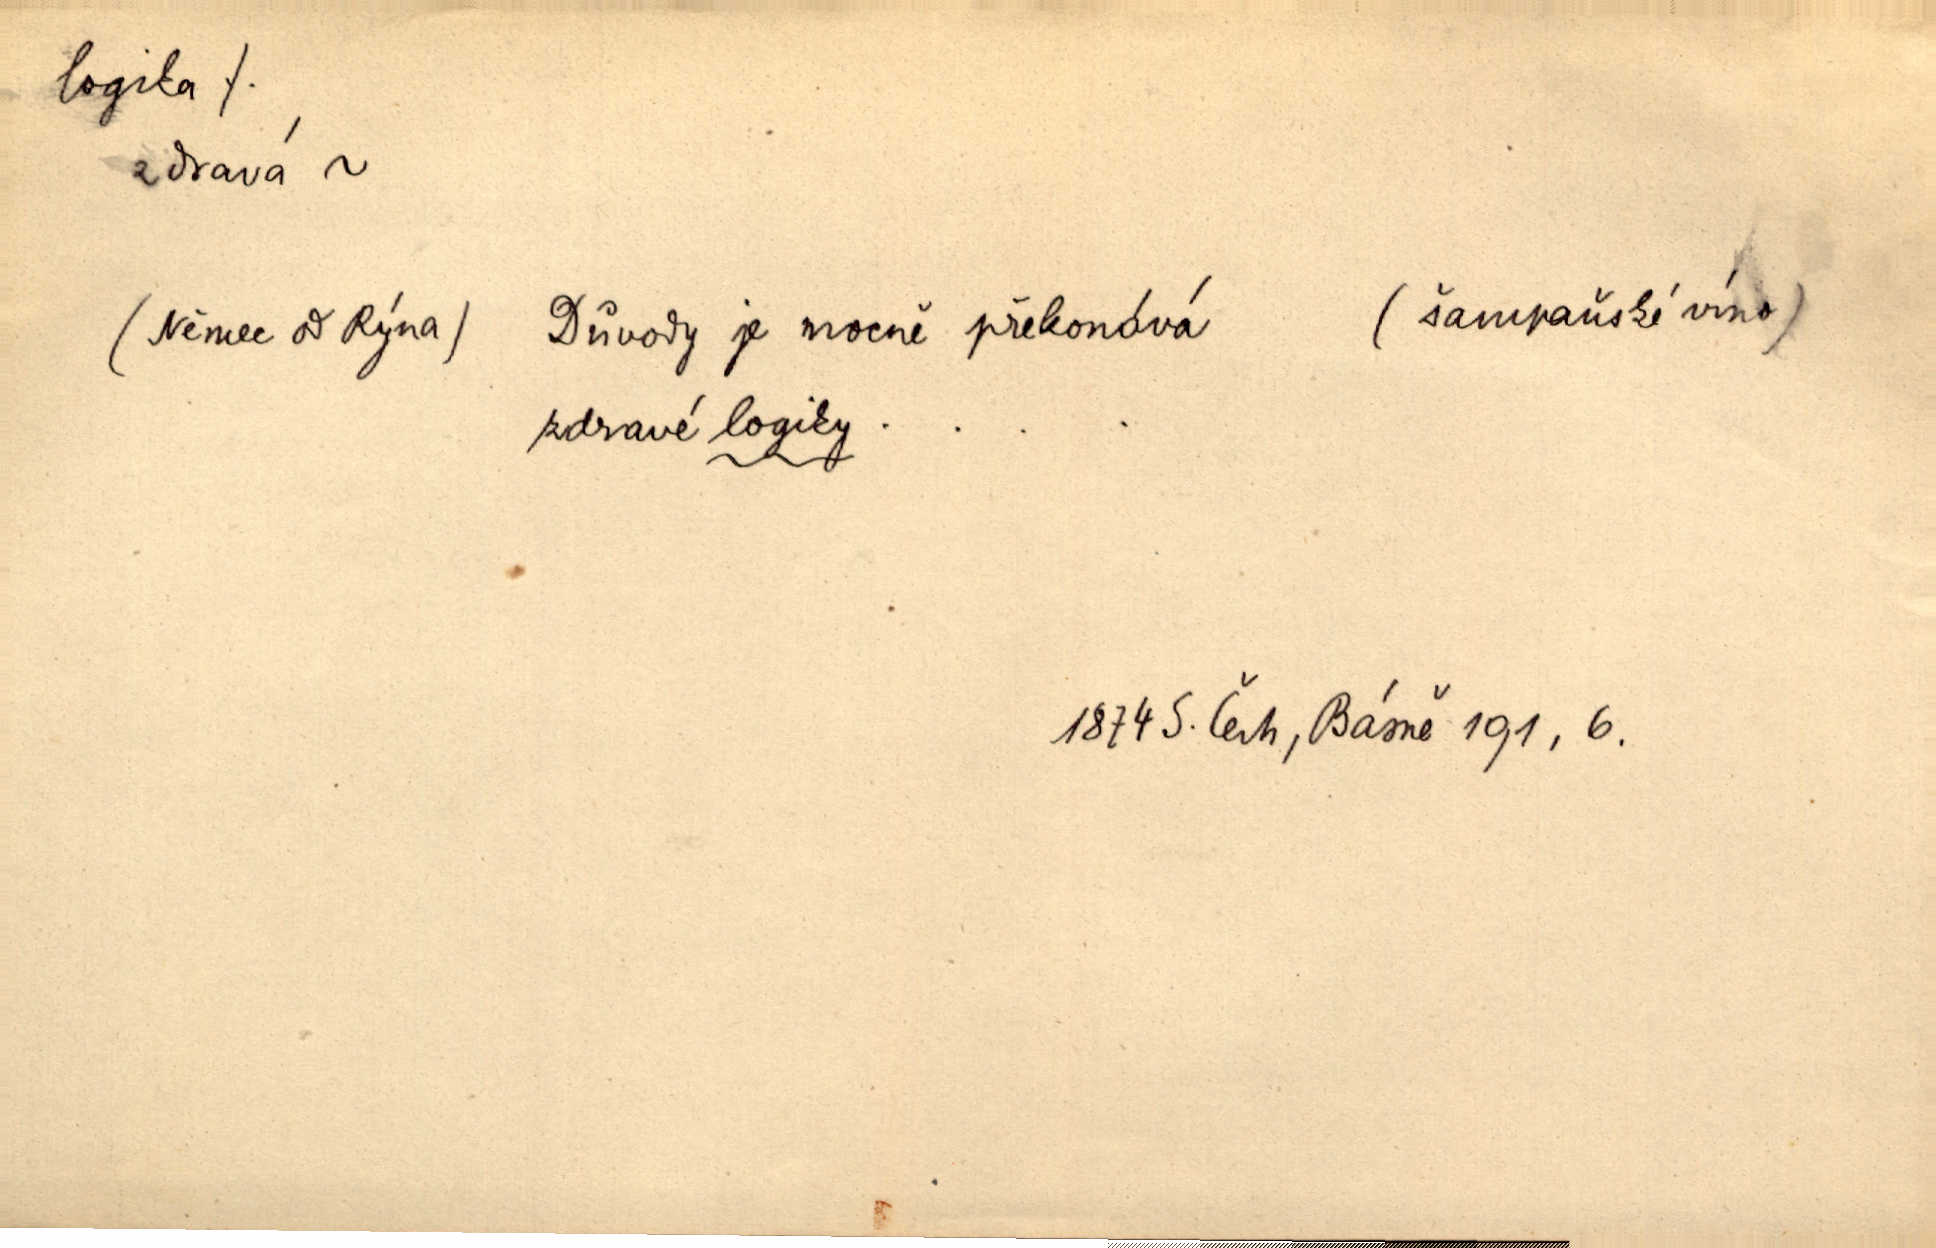 logika f.
zdravá ~
(Němec od Rýna) Důvody je mocně překonává (šampaňské víno)
zdravé logiky . . . .
1874 S. Čech, Básně 191, 6.